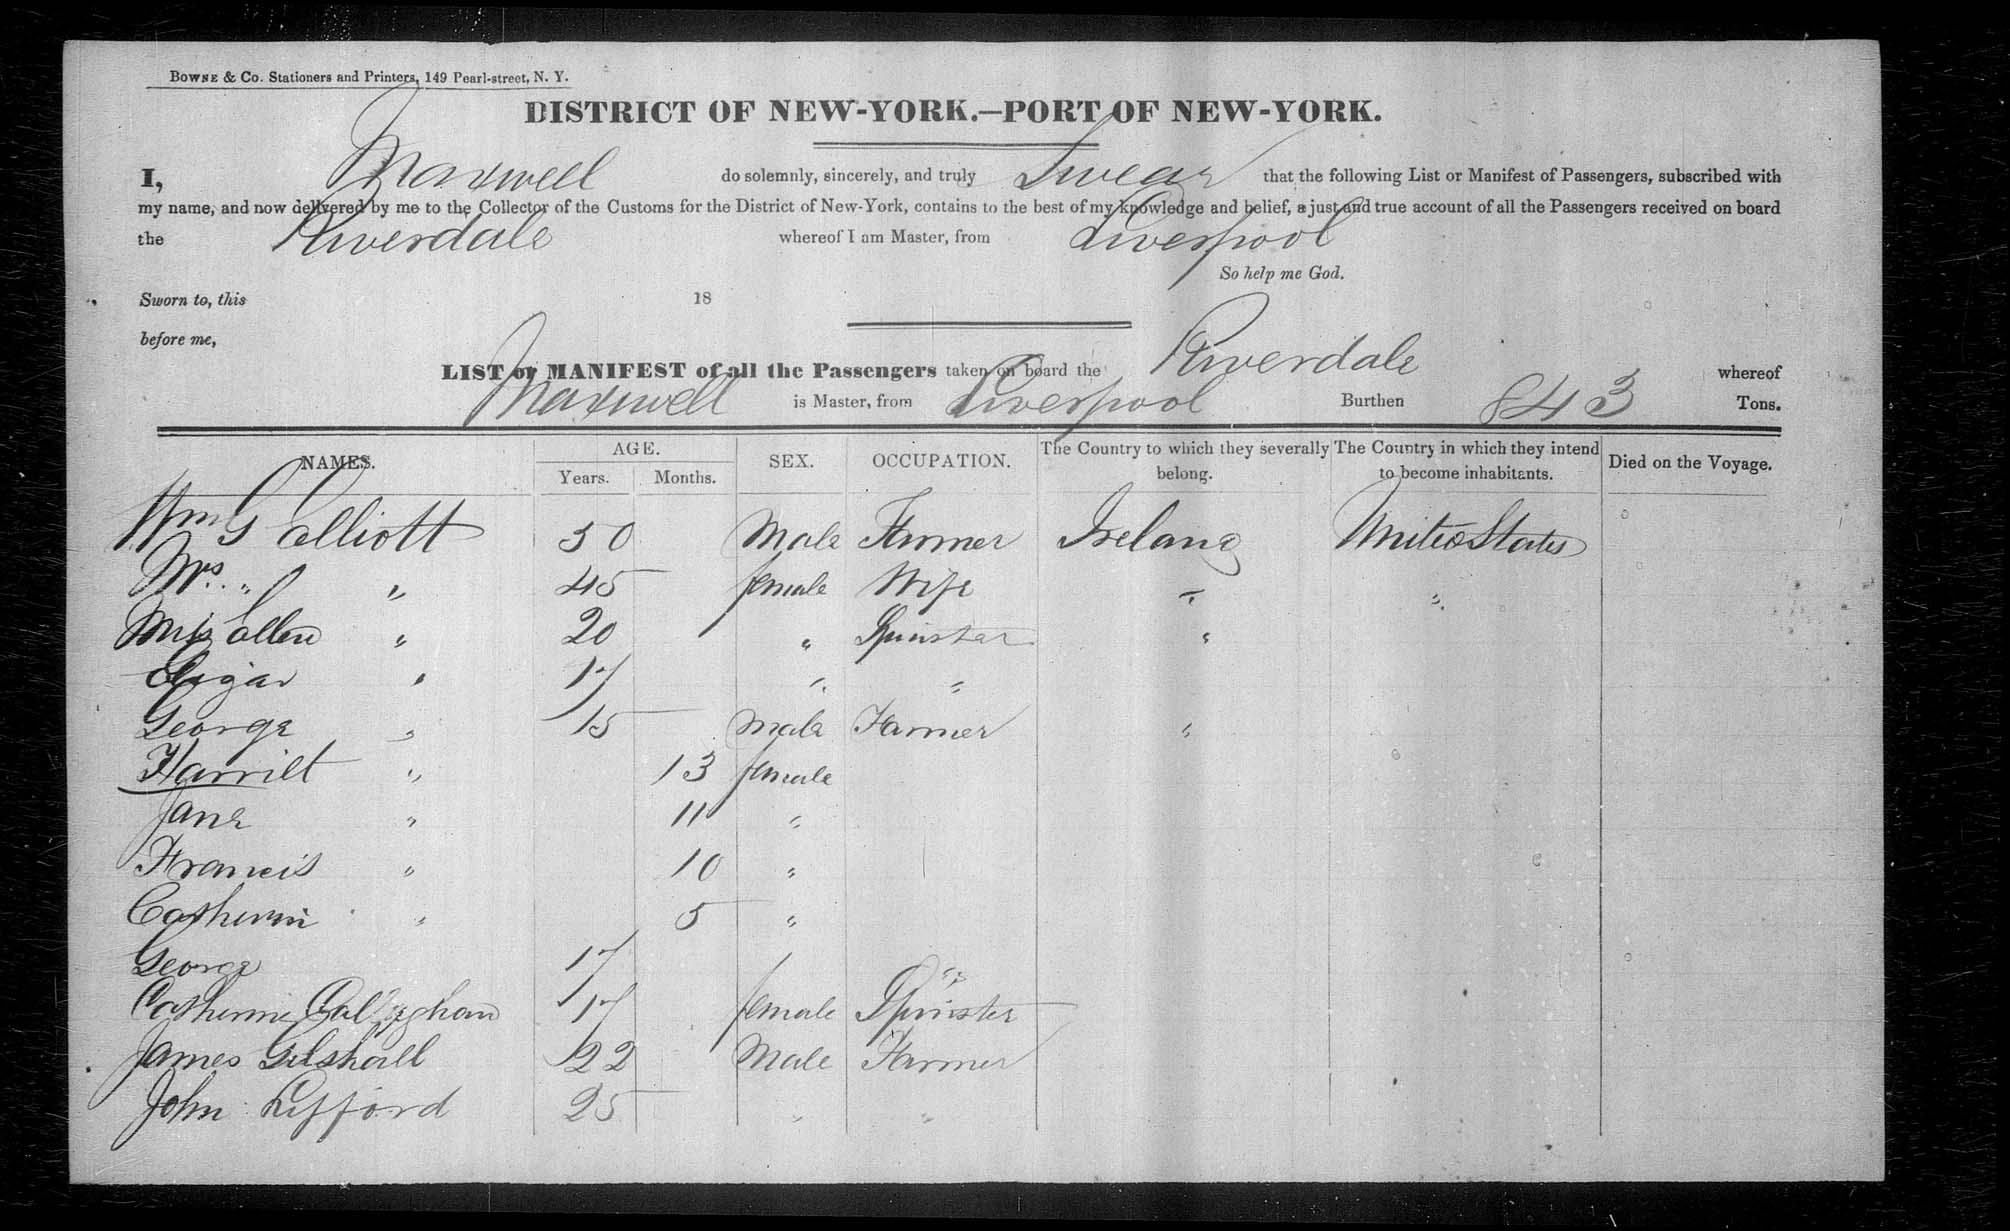 BOWNE & CO. Stationers and Printers, 149 Pearl-street, N. Y.
DISTRICT OF NEW-YORK.—PORT OF NEW-YORK.
I, Maxwell do solemnly, sincerely, and truly Swear that the following List or Manifest of Passengers, subscribed with
my name, and now delivered by me to the Collector of the Customs for the District of New-York, contains to the best of my knowledge and belief, a just and true account of all the Passengers received on board
the Riverdale whereof I am Master, from Liverpool
So help me God.
Sworn to, this 18
before me,
LIST or MANIFEST of all the Passengers taken on board the Riverdale whereof
Maxwell is Master, from Liverpool Burthen 843 Tons.
NAMES. AGE. SEX. OCCUPATION. The Country to which they severally belong. The Country in which they intend to become inhabitants. Died on the Voyage.
Years. Months.
Wm G Elliott 50 Male Farmer Ireland United States
Mrs. " " 45 female Wife " "
Miss Ellen " 20 " Spinster "
" 17 " "
George " 15 Male Farmer "
Harriet " 13 female
Jane " 11 "
Francis " 10 "
Catherine " 5 "
George 17 "
Catherine 17 female Spinster
James 22 Male Farmer
John 25 " "